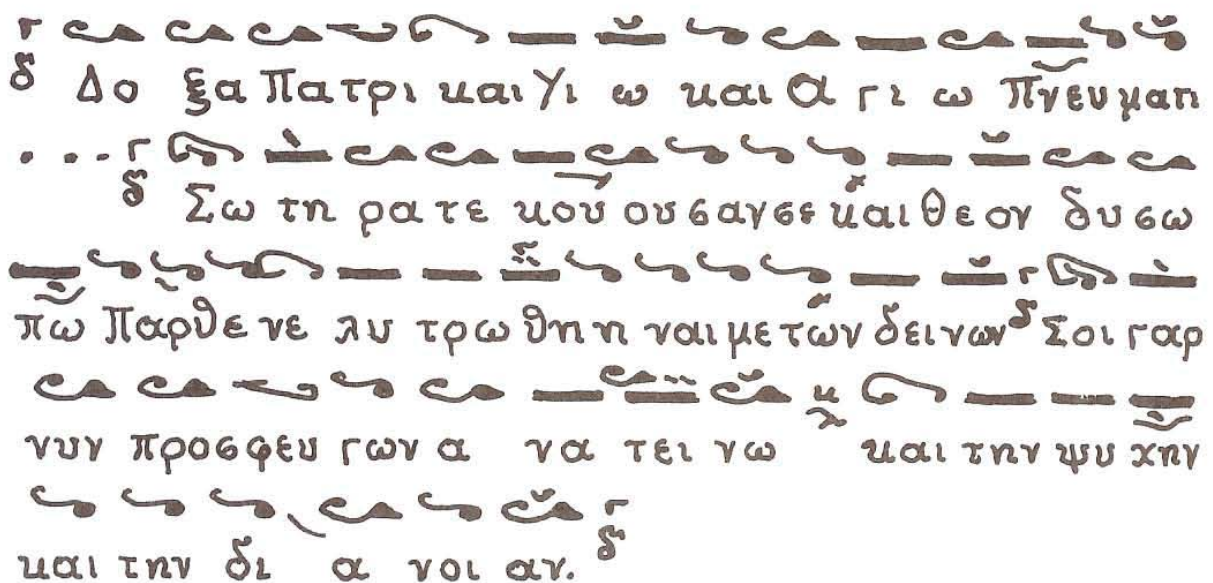 Δο ξα Πα τρι και Υι ω και α γι ω Πνευ μα τι
Σω τη ρα τε κου ου σαν σε και Θε ον δυ σω
πω Παρ θε νε λυ τρω θη η ναι με των δει νων Σοι γαρ
νυν προσ φευ γων α να τει νω και την ψυ χην
και την δι α νοι αν.